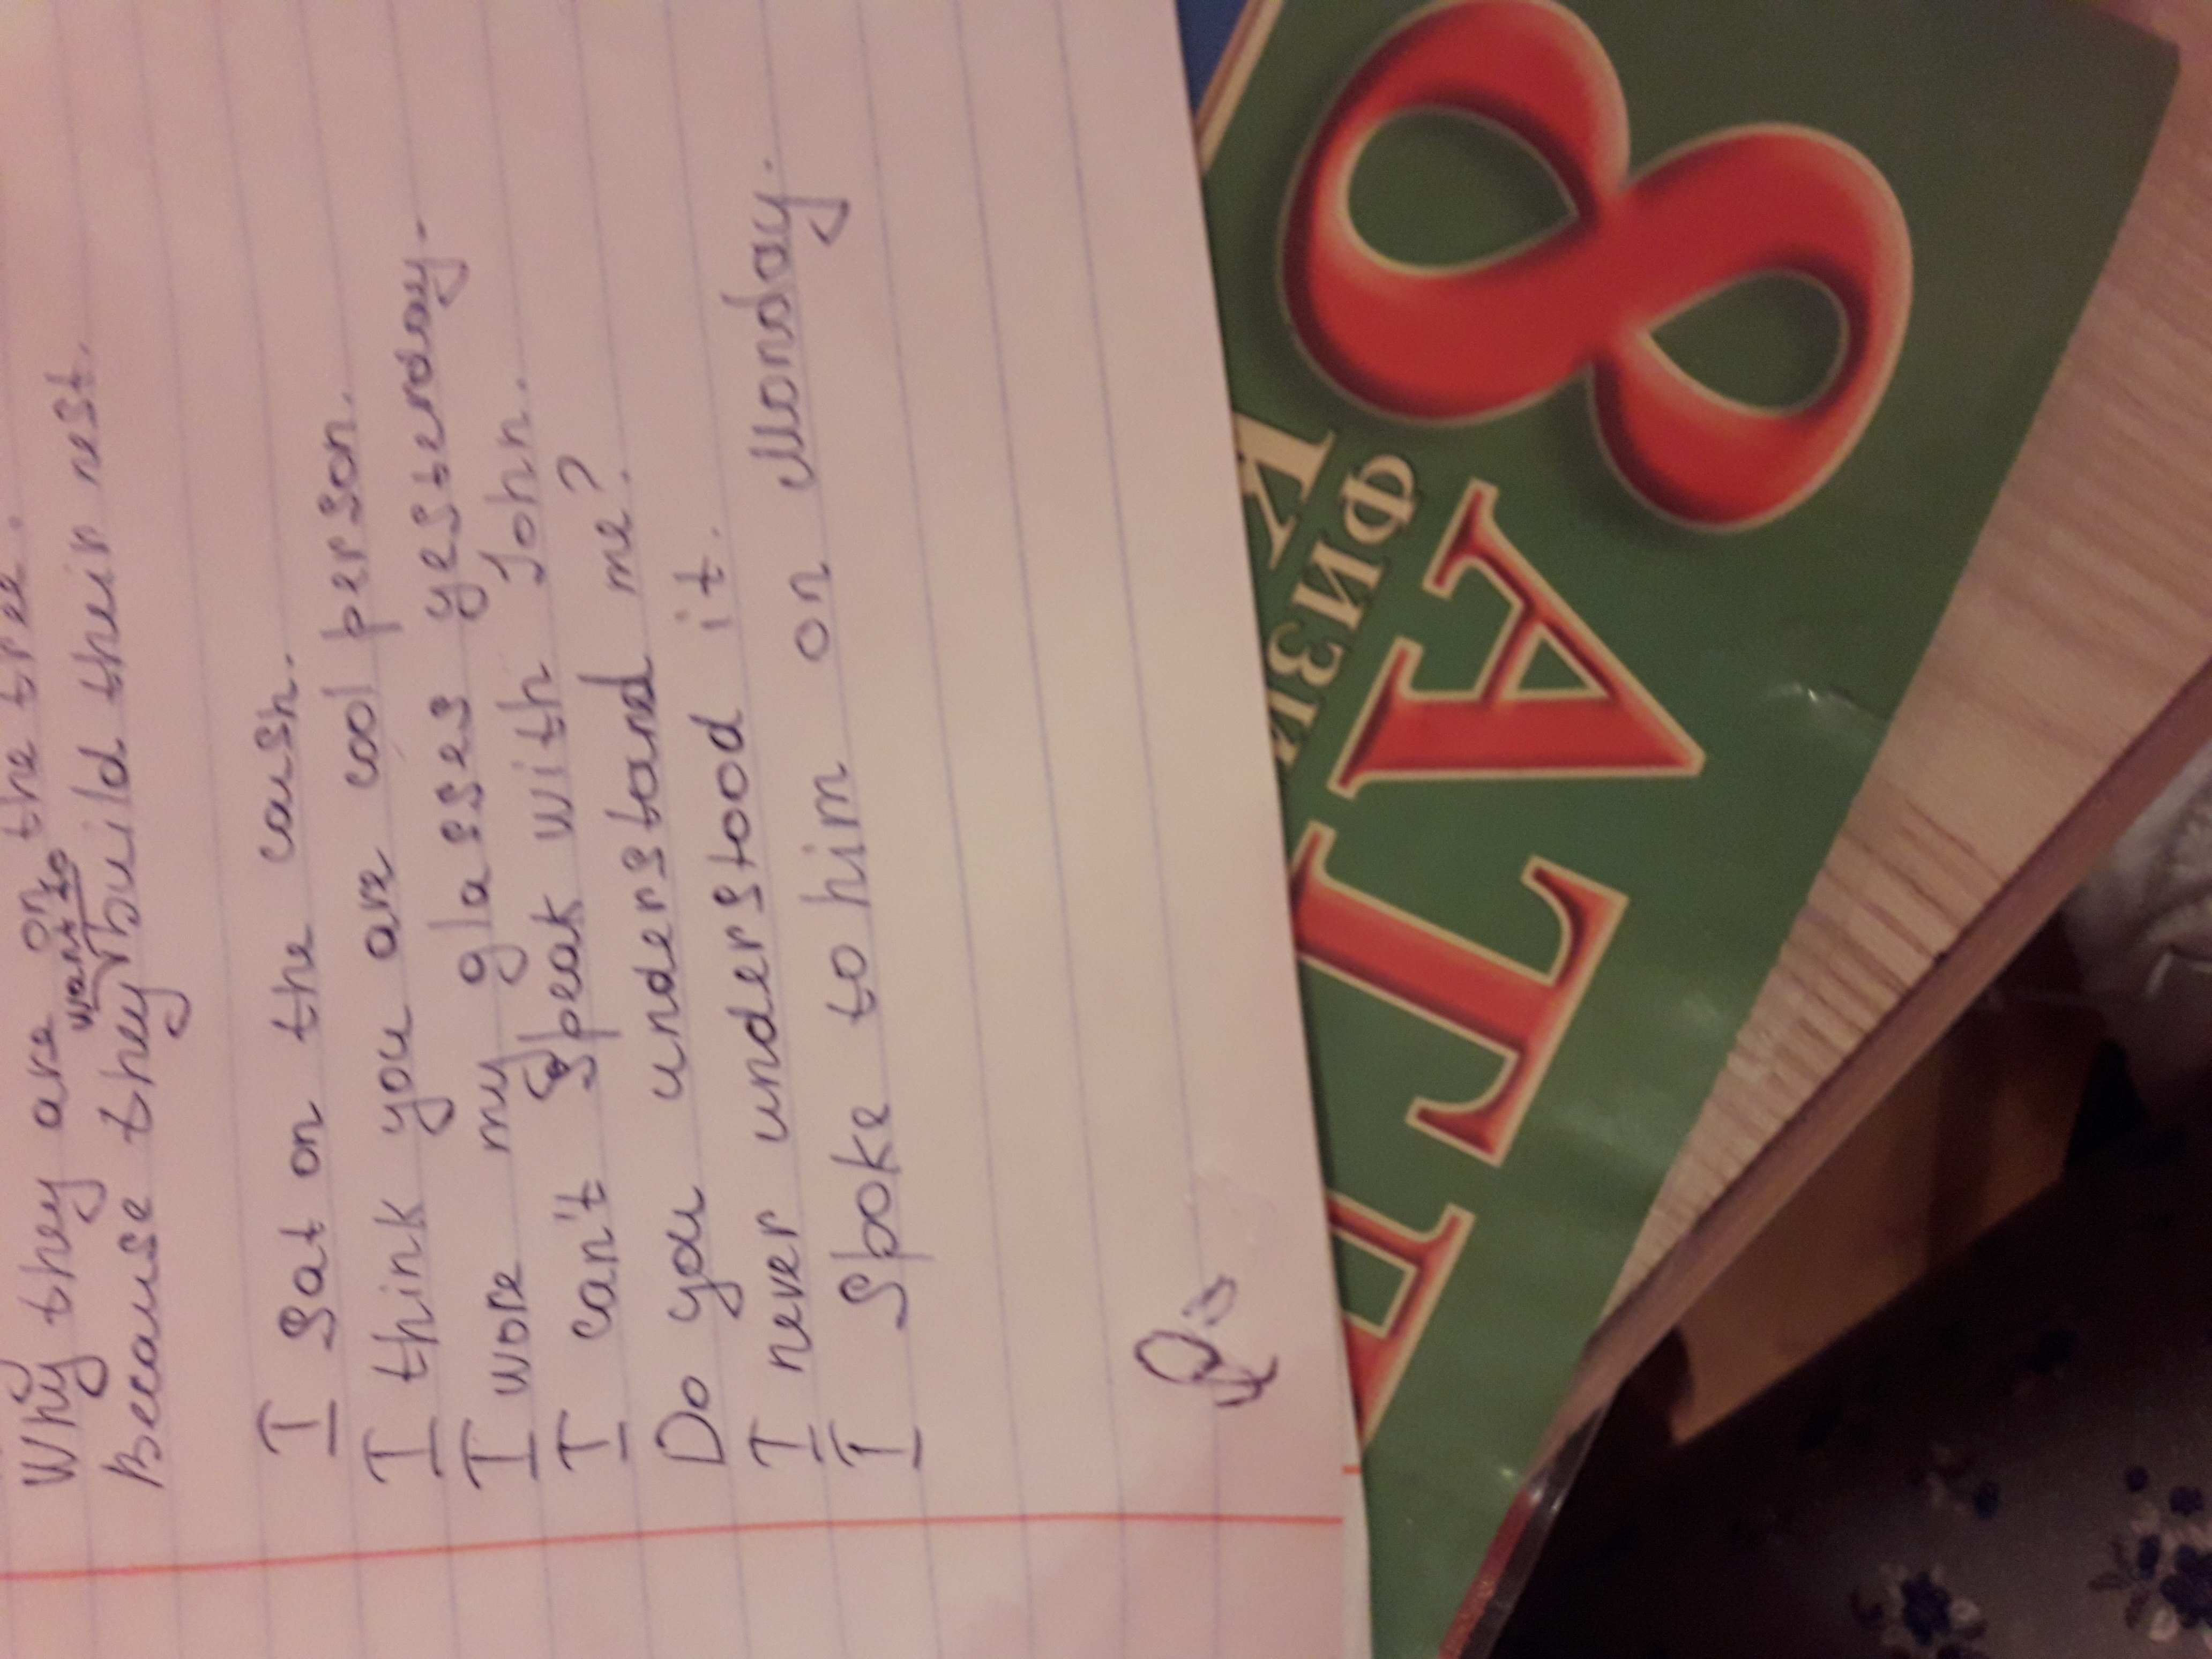 Why they are on the tree.
want to
Because they build their nest.
I sat on the caush.
I think you are cool person.
I wore my glasses yesterday.
I can't speak with John.
Do you understand me?
I never understood it.
I spoke to him on Monday.
8
К
ФИЗИ
АТ